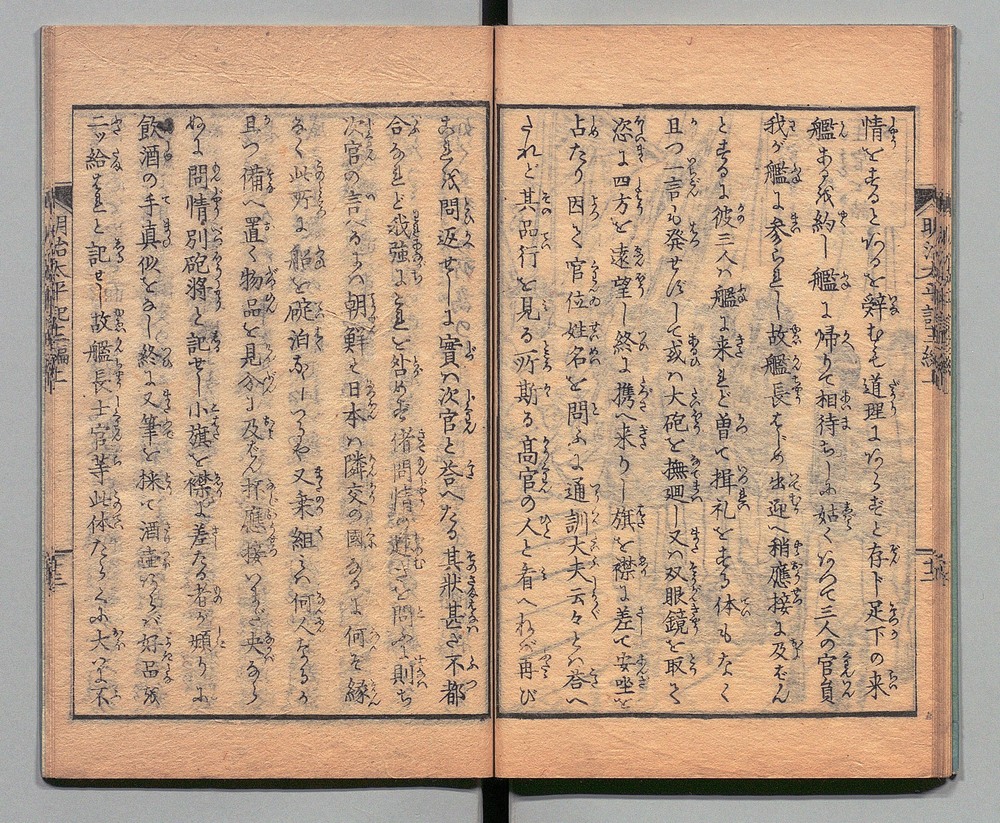 情をするとあるを辞むも道理にあらずと存ト足下の来
艦あるを約し艦に帰りて相待ちしに姑くあつて三人の官員
我が艦に参られし故艦長はじめ出迎へ稍應接に及ばん
とするに彼三人ハ艦に来れど曽て揖礼をする体もなく
且つ一言も発せずして或ハ大砲を撫廻し又ハ双眼鏡を取て
恣に四方を遠望し終に携へ来りし旗を襟に差て安坐を
占たり因て官位姓名を問ふに通訓大夫云々とハ答へ
たれど其品行を見る所斯る高官の人と看へねバ再び
これを問返せしに實ハ次官と答へたる其状甚だ不都
合なれど我強に之れを咎めず偖問情の趣きを問ふに則ち
次官の言へるハ朝鮮と日本ハ隣交の國なるに何を縁
なく此所に船を碇泊なしつるや又乗組ハ何人なるか
且つ備へ置く物品を見分に及ばん抔應接いまだ央なら
ぬに問情別砲将と記せし小旗を襟に差たる者が頻りに
飲酒の手真似をなし終に又筆を採て酒壷あらバ好品
二ッ給はれと記せし故艦長士官等此体たらくに大いに不
明治太平記